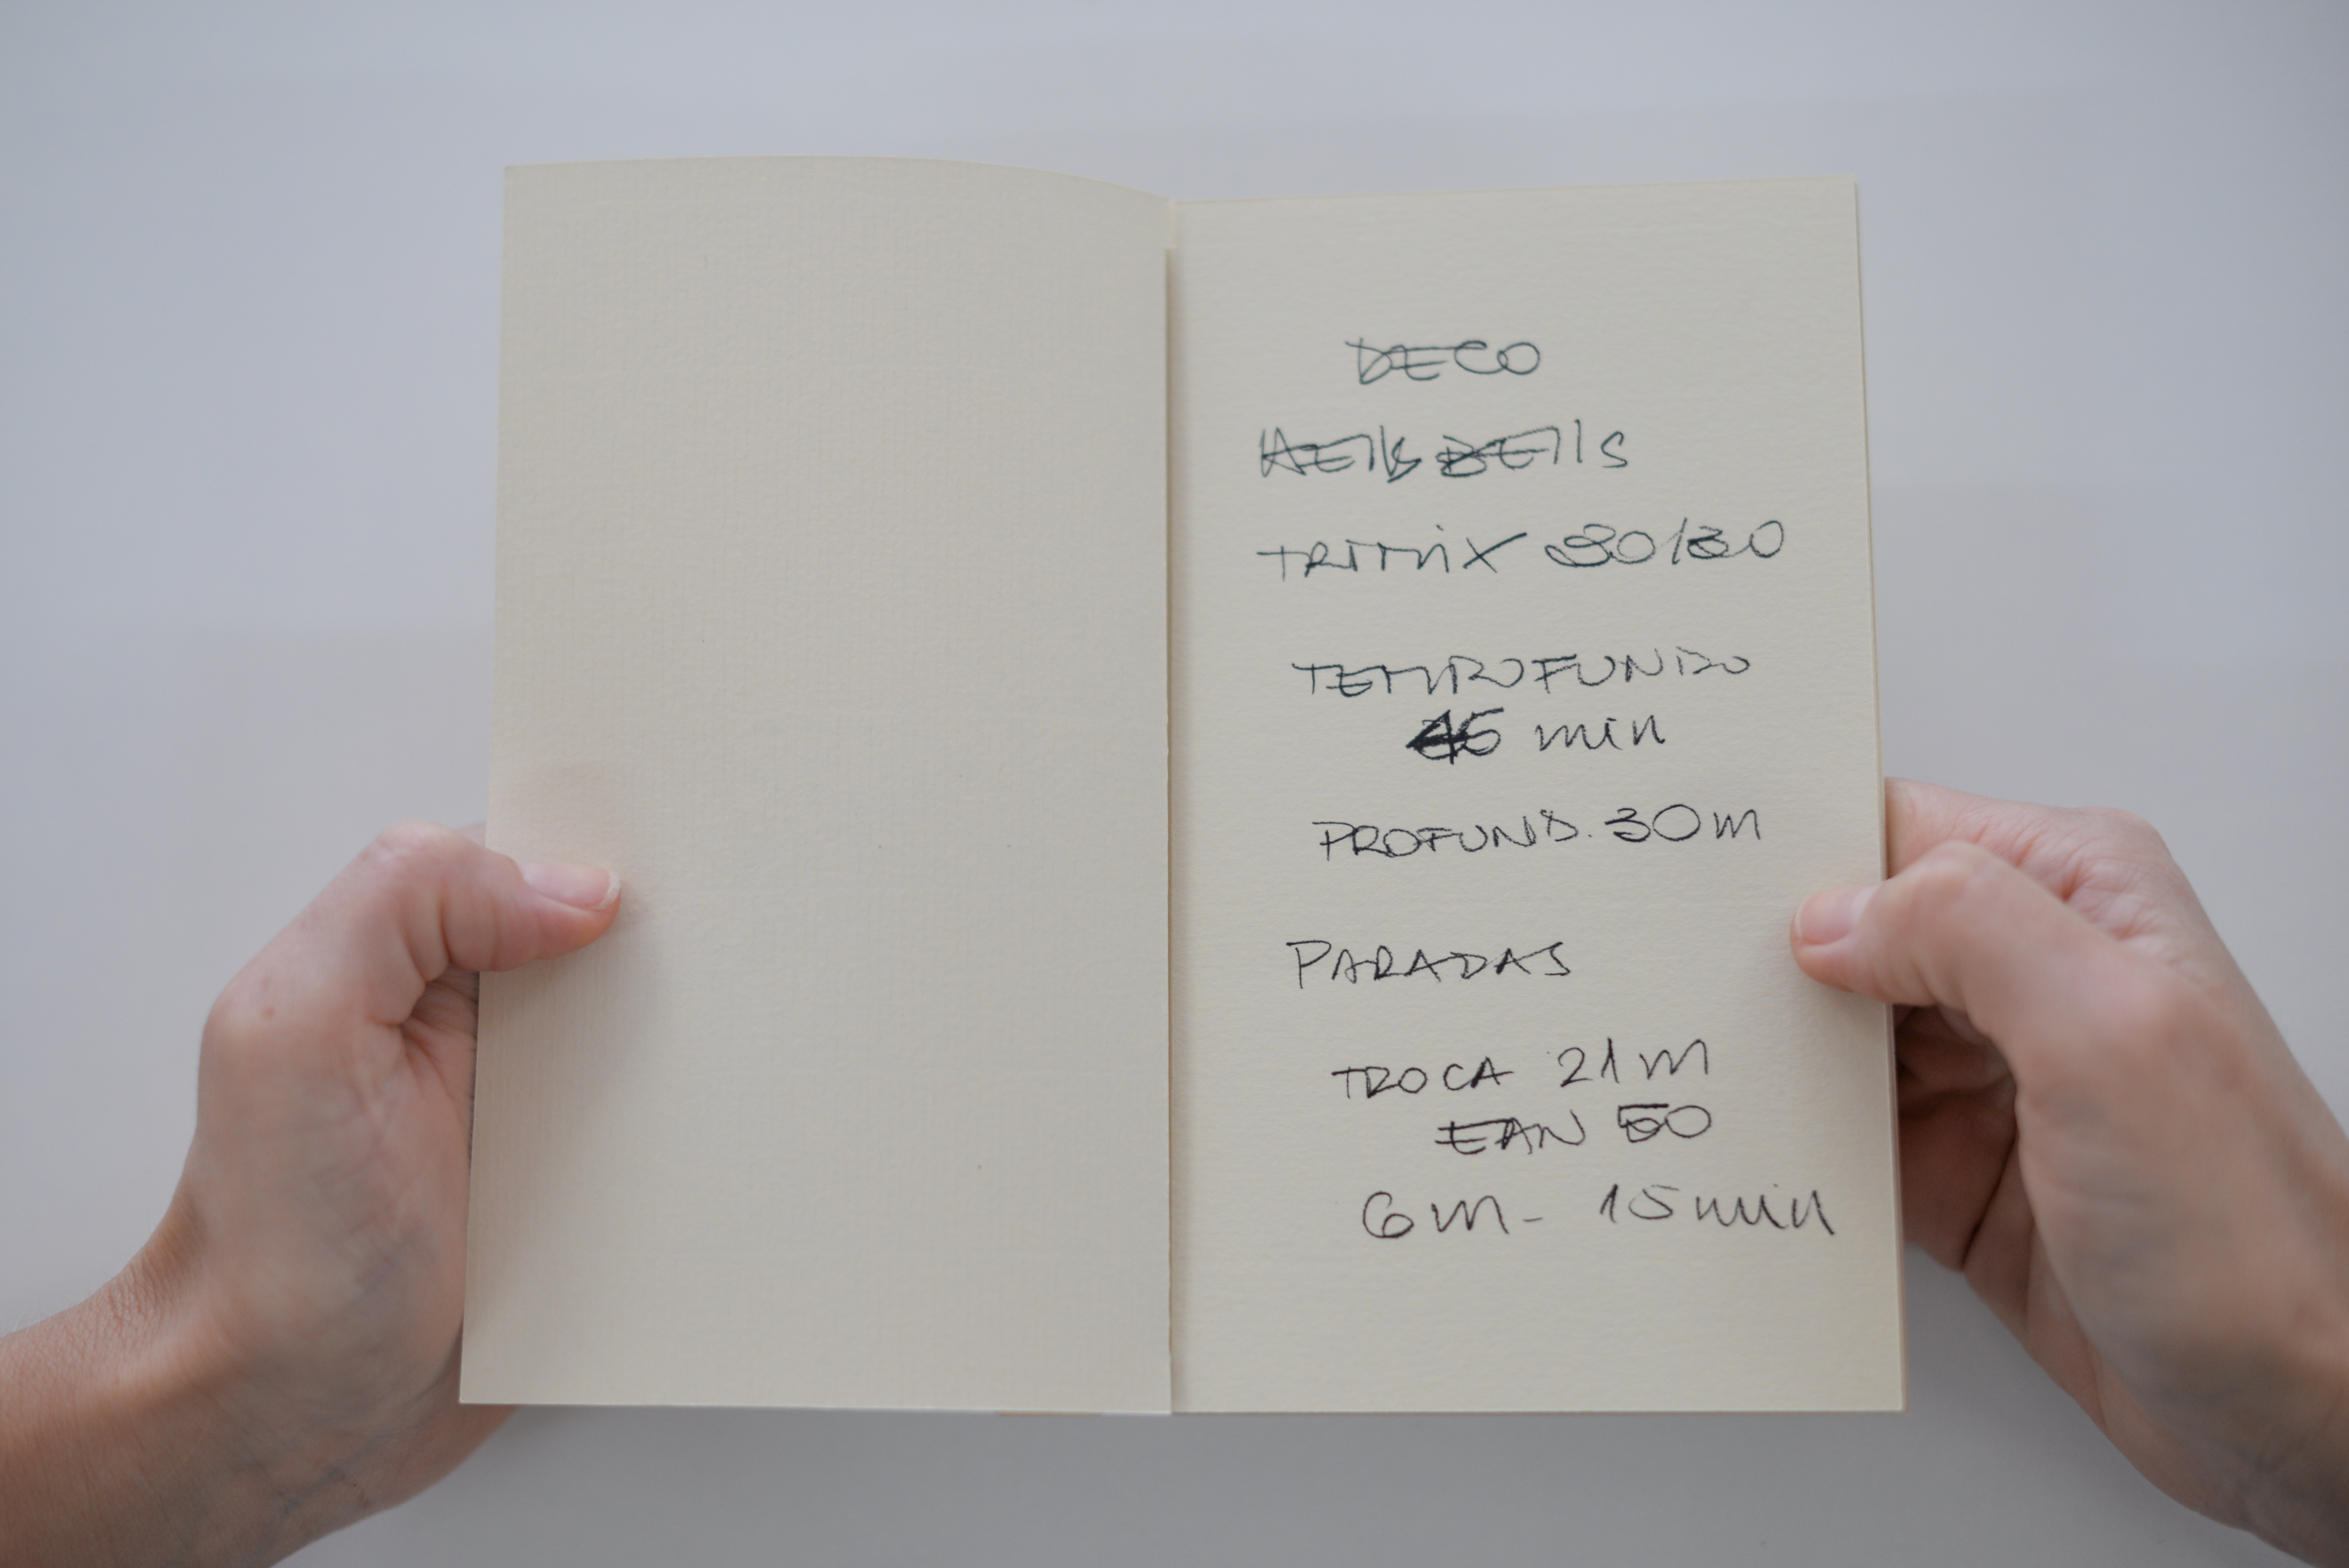 DECO
BEllS
TRIMIX 30/30
TEMPROFUNDO
min
PROFUND. 30m
PARADAS
TROCA 21m
EAN 50
6m - 15min